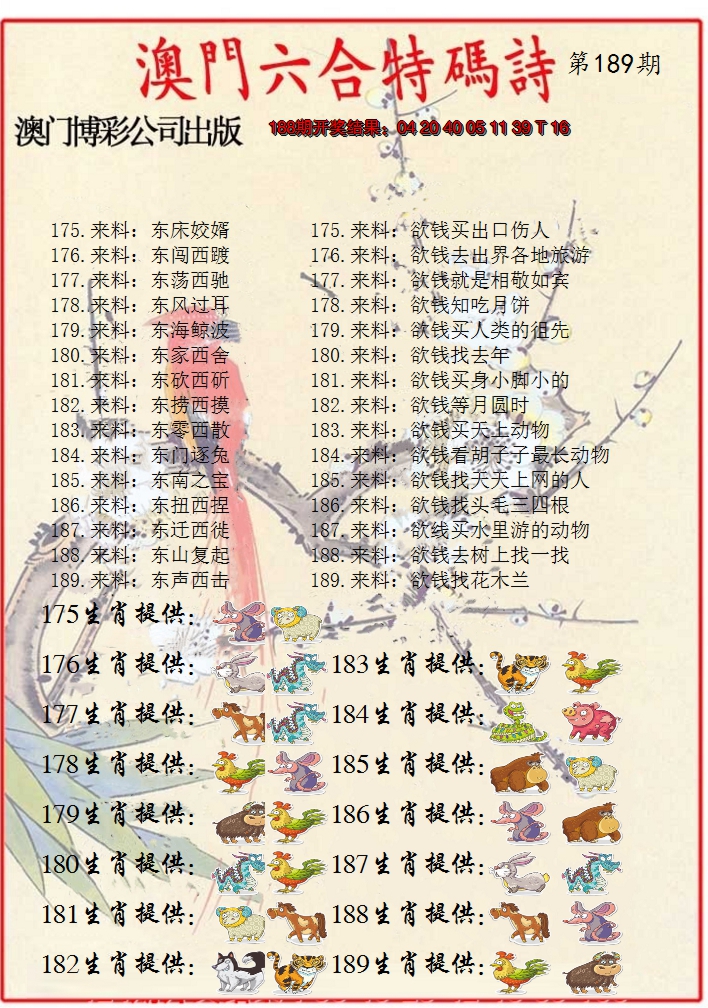 澳門六合特碼詩 第189期
澳门博彩公司出版 188期开奖结果：04 20 40 05 11 39 T 16
175.来料：东床姣婿 175.来料：欲钱买出口伤人
176.来料：东闯西踱 176.来料：欲钱去出界各地旅游
177.来料：东荡西驰 177.来料：欲钱就是相敬如宾
178.来料：东风过耳 178.来料：欲钱知吃月饼
179.来料：东海鲸波 179.来料：欲钱买人类的徂先
180.来料：东家西舍 180.来料：欲钱找去年
181.来料：东砍西斫 181.来料：欲钱买身小脚小的
182.来料：东捞西摸 182.来料：欲钱等月圆时
183.来料：东零西散 183.来料：欲钱买天上动物
184.来料：东门逐兔 184.来料：欲钱看胡子子最长动物
185.来料：东南之宝 185.来料：欲钱找天天上网的人
186.来料：东扭西捏 186.来料：欲钱找头毛三四根
187.来料：东迁西徙 187.来料：欲线买水里游的动物
188.来料：东山复起 188.来料：欲钱去树上找一找
189.来料：东声西击 189.来料：欲钱找花木兰
175生肖提供：
176生肖提供： 183生肖提供：
177生肖提供： 184生肖提供：
178生肖提供： 185生肖提供：
179生肖提供： 186生肖提供：
180生肖提供： 187生肖提供：
181生肖提供： 188生肖提供：
182生肖提供： 189生肖提供：